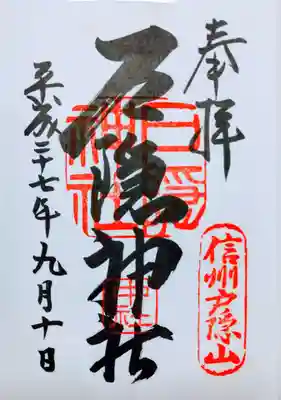 奉拝
信州戸隠山
戸隠神社
平成二十七年九月十日